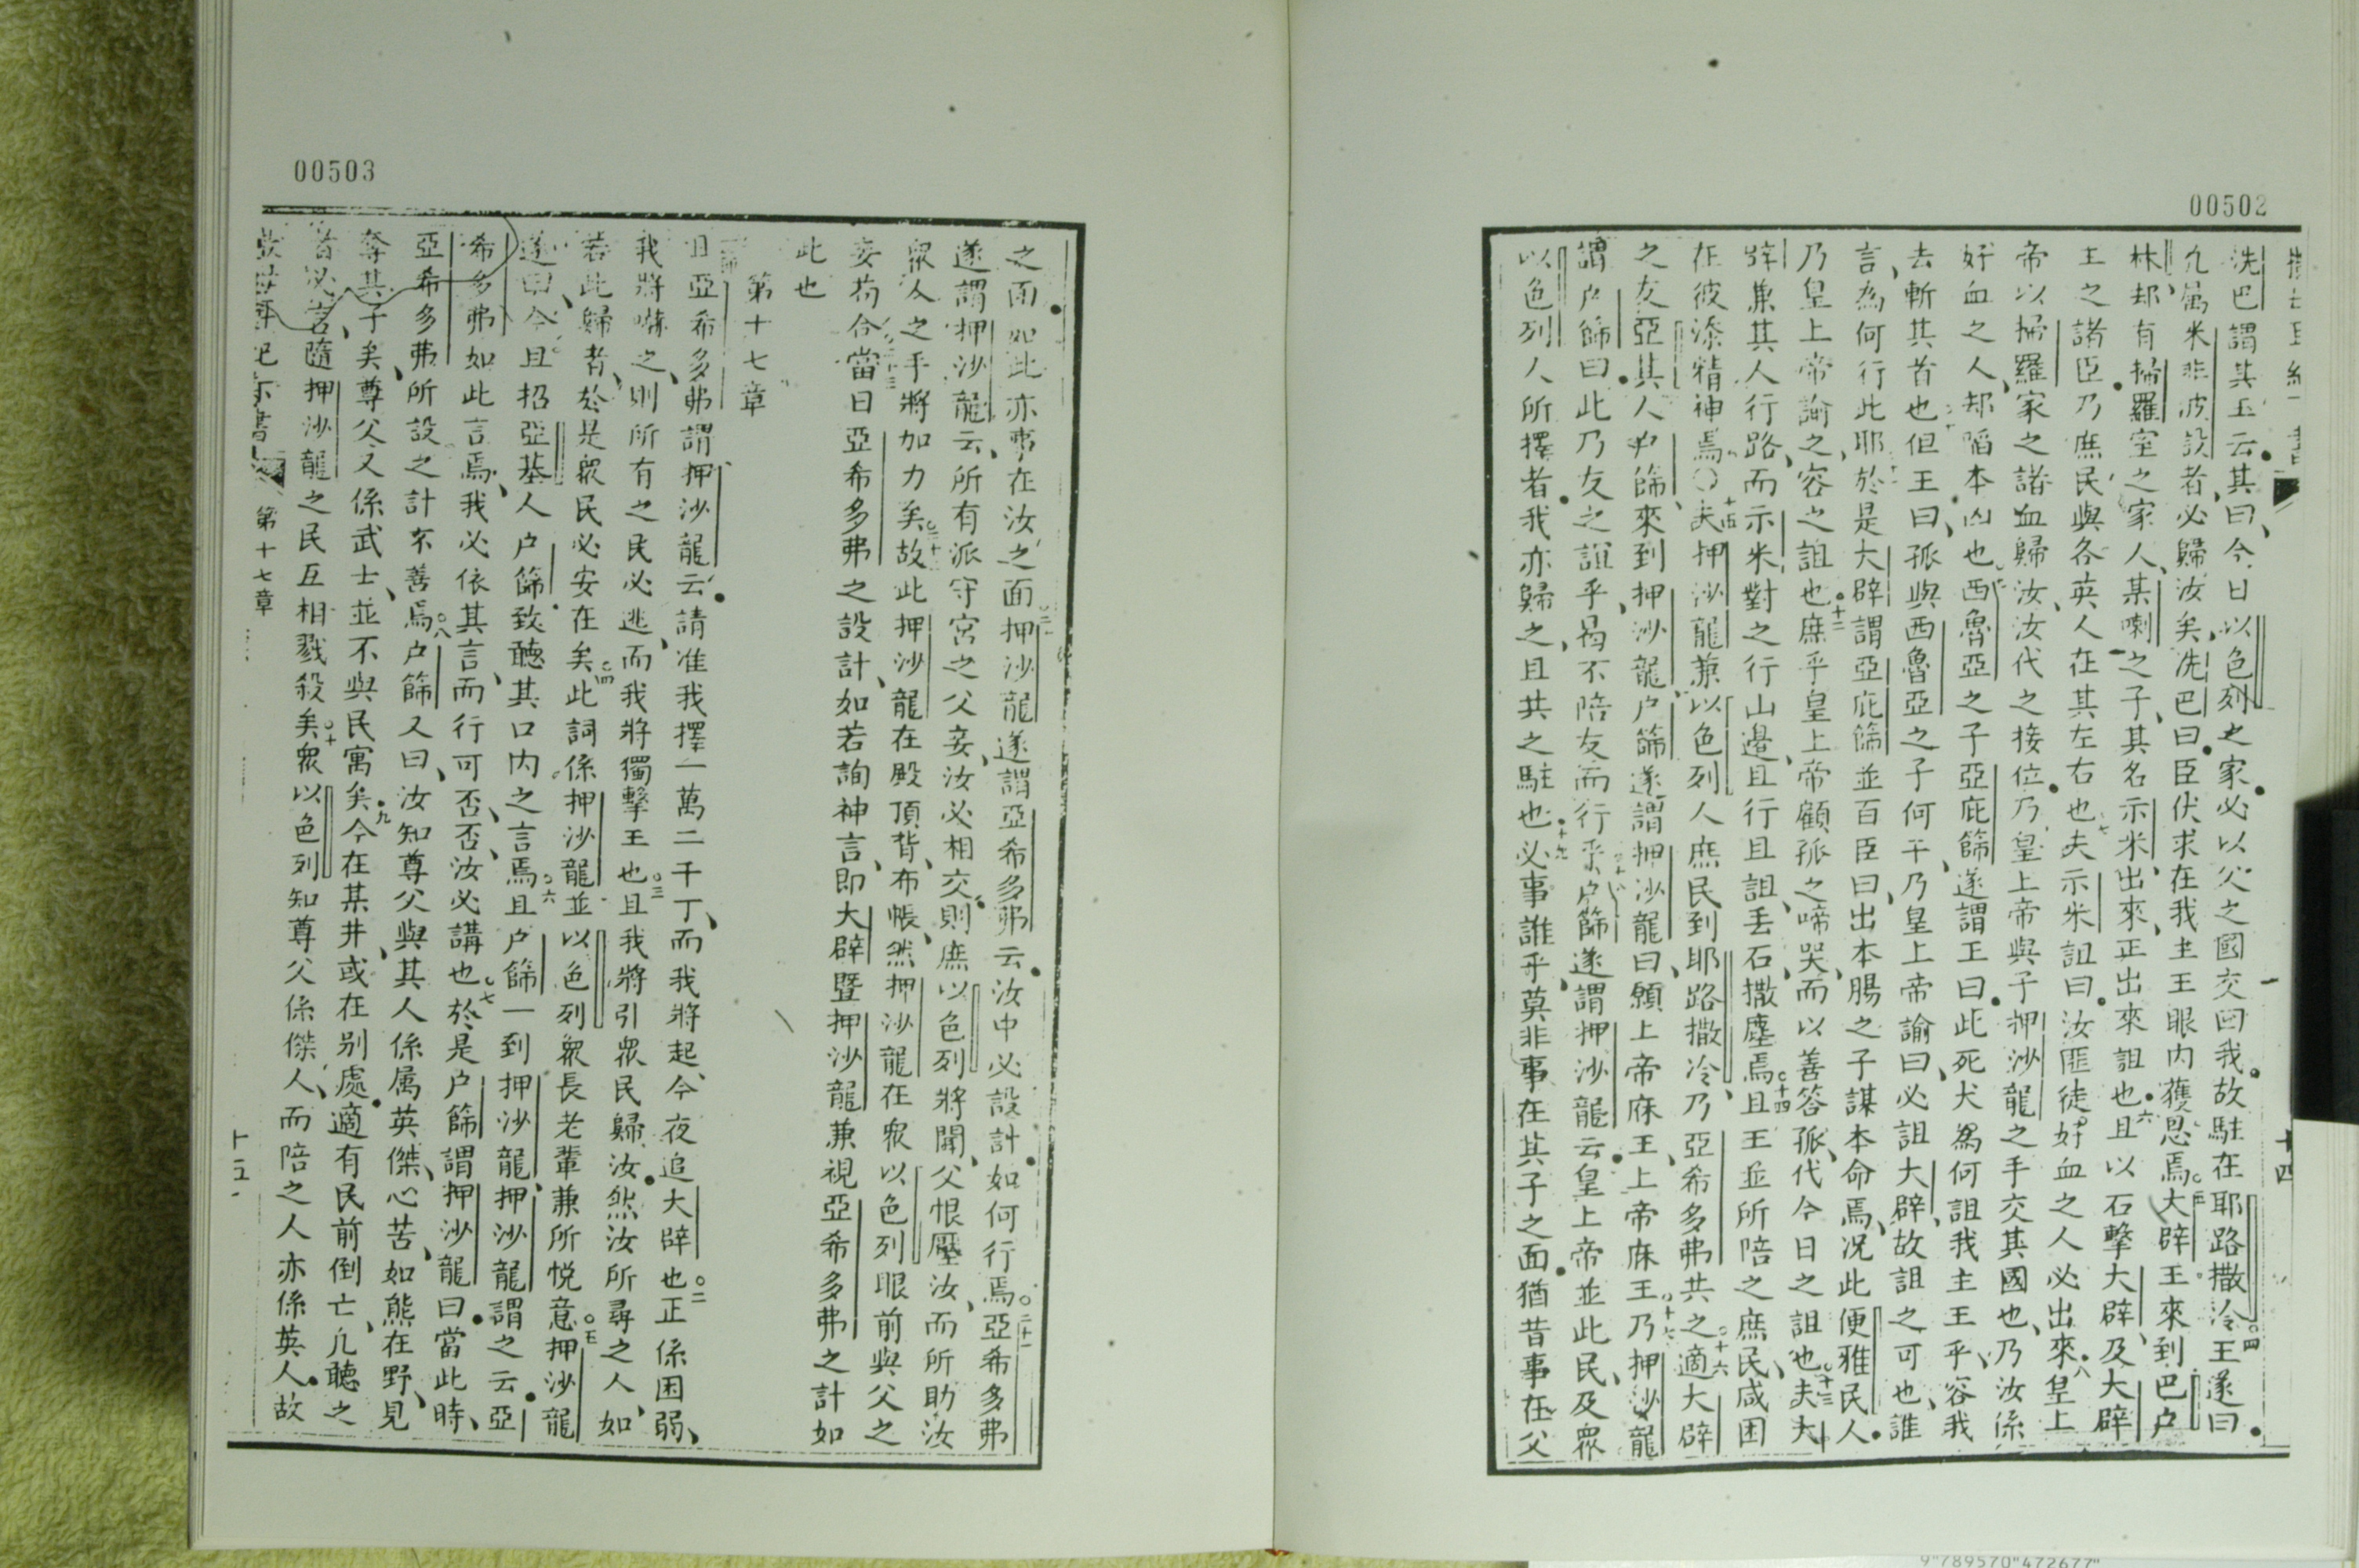 00502
洗巴謂其王云其曰今日以色列之家必以父之國交回我故駐在耶路撒冷○四王遂曰
凡属米非波設者必歸汝矣洗巴曰臣伏求在我主王眼内獲恩焉○五大辟王來到巴户
林却有掃羅室之家人某喇之子其名示米出來正出來詛也○六且以石擊大辟及大辟
王之諸臣乃庶民與各英人在其左右也○七夫示米詛曰汝匪徒好血之人必出來○八皇上
帝以掃羅家之諸血歸汝汝代之接位乃皇上帝與子押沙龍之手交其國也乃汝係
好血之人却陷本凶也○九西魯亞之子亞庇篩遂謂王曰此死犬為何詛我主王乎容我
去斬其首也○十但王曰孤與西魯亞之子何干乃皇上帝諭曰必詛大辟故詛之可也誰
言為何行此耶○十一於是大辟謂亞庇篩並百臣曰出本腸之子謀本命焉况此便雅民人
乃皇上帝諭之容之詛也○十二庶乎皇上帝顧孤之啼哭而以善答孤代今日之詛也○十三夫大
辟兼其人行路而示米對之行山邊且行且詛丢石撒塵焉○十四且王並所陪之庶民咸困
在彼添精神焉○十五夫押沙龍兼以色列人庶民到耶路撒冷乃亞希多弗共之○十六適大辟
之友亞其人户篩來到押沙龍户篩遂謂押沙龍曰願上帝庥王上帝庥王○十七乃押沙龍
謂户篩曰此乃友之誼乎曷不陪友而行乎○十八户篩遂謂押沙龍云皇上帝並此民及眾
以色列人所擇者我亦歸之且共之駐也○十九必事誰乎莫非事在其子之面猶昔事在父
十四
00503
之面如此亦事在汝之面○二十押沙龍遂謂亞希多弗云汝中必設計如何行焉○二十一亞希多弗
遂謂押沙龍云所有派守宮之父妾汝必相交則庶以色列將聞父恨壓汝而所助汝
眾人之手將加力矣○二十二故此押沙龍在殿頂背布帳然押沙龍在眾以色列眼前與父之
妾茍合○二十三當日亞希多弗之設計如若詢神言即大辟暨押沙龍兼視亞希多弗之計如
此也
第十七章
且亞希多弗謂押沙龍云請准我擇一萬二千丁而我將起今夜追大辟也○二正係困弱
我將嚇之則所有之民必逃而我將獨擊王也○三且我將引眾民歸汝然汝所尋之人如
若此歸者於是眾民必安在矣○四此詞係押沙龍並以色列眾長老輩兼所悅意○五押沙龍
遂曰今且招亞基人户篩致聽其口内之言焉○六且户篩一到押沙龍押沙龍謂之云亞
希多弗如此言焉我必依其言而行可否否汝必講也○七於是户篩謂押沙龍曰當此時
亞希多弗所設之計不善焉○八户篩又曰汝知尊父與其人係属英傑心苦如熊在野見
奪其子矣尊父又係武士並不與民寓矣○九今在某井或在别處適有民前倒亡凢聽之
者必言隨押沙龍之民互相戮殺矣○十眾以色列知尊父係傑人而陪之人亦係英人故
第十七章